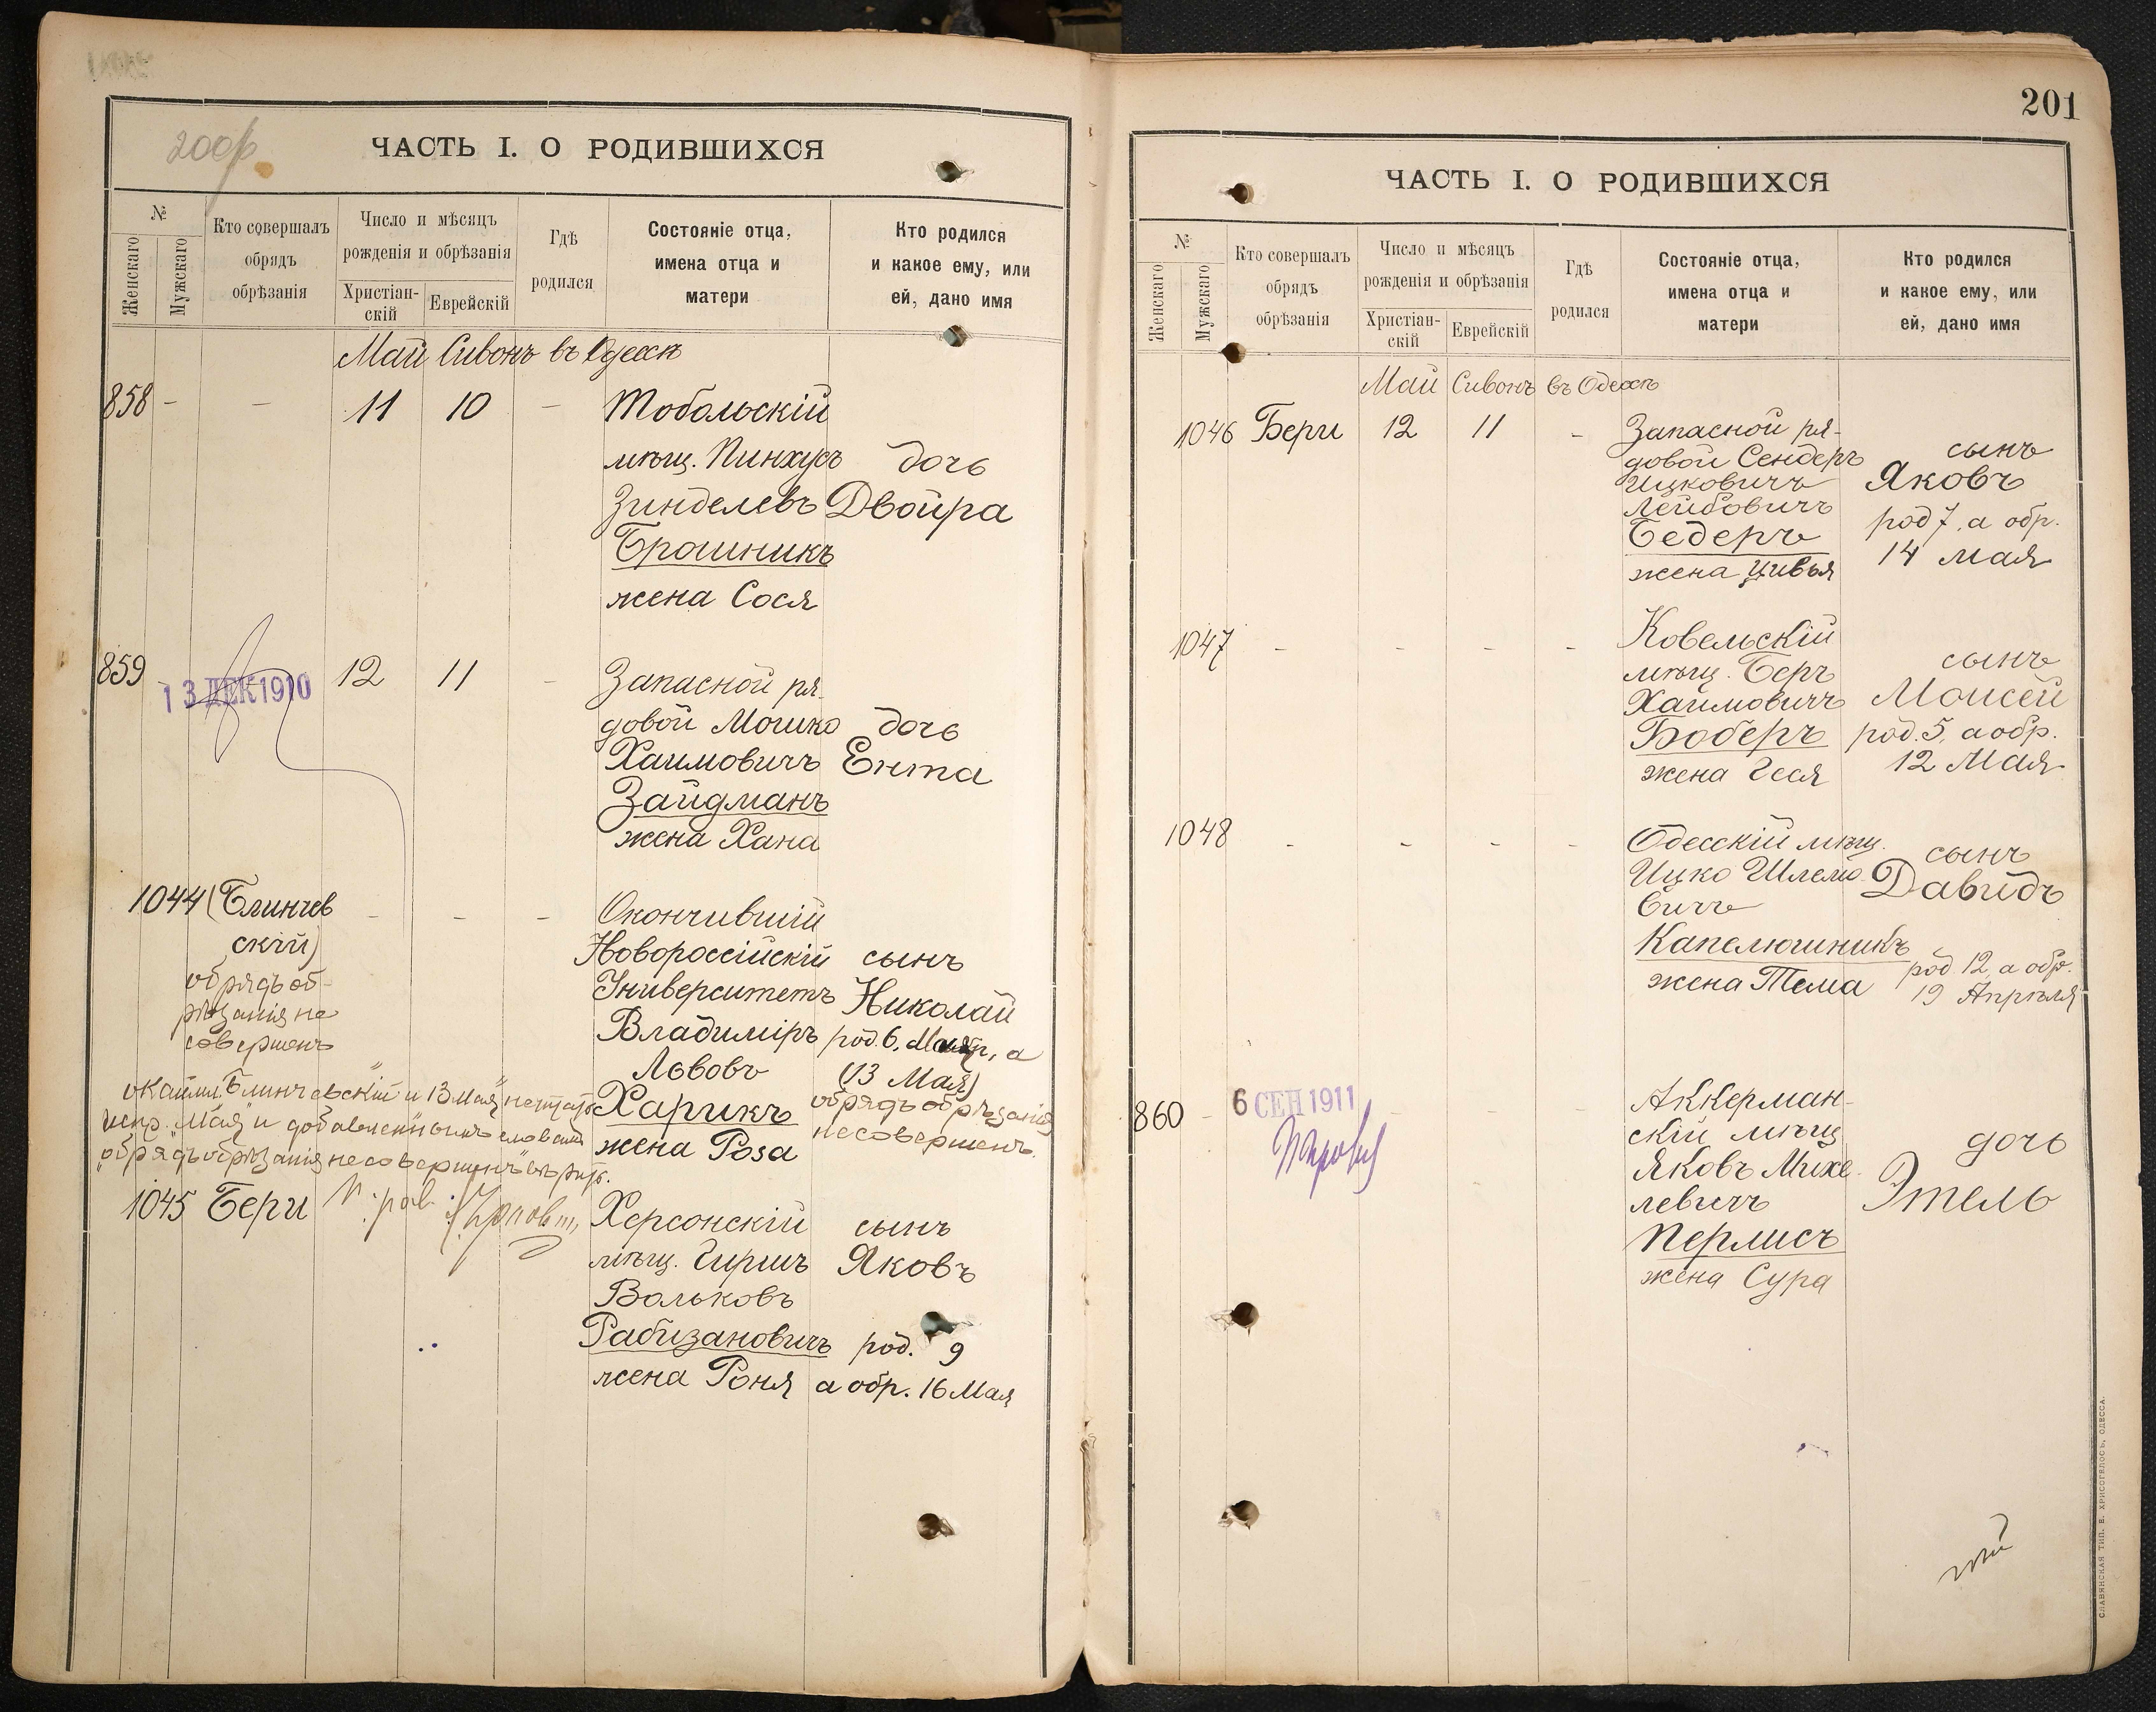 200р.
ЧАСТЬ I. О РОДИВШИХСЯ
№
Женскаго
Мужскаго
Кто совершалъ
обрядъ
обрѣзанія
Число и мѣсяцъ
рожденія и обрѣзанія
Христіан-
скій
Еврейскій
Гдѣ
родился
Состояніе отца,
имена отца и
матери
Кто родился
и какое ему, или
ей, дано имя
Май Сивонъ въ Одессѣ
858 - - 11 10 - Тобольскій
мѣщ. Пинхусъ дочь
Зинделевъ Двойра
Брошникъ
жена Сося
859 - 13 ДЕК 1910 12 11 - Запасной ря-
довой Мошко дочь
Хаимовичъ Ента
Зайдманъ
жена Хана
1044 (Блинчев - - - Окончившій
скій) Новороссійскій сынъ
обрядъ об- Университетъ Николай
рѣзанія не Владиміръ род. 6, а
совершенъ Львовъ (13 Мая)
Харикъ обрядъ обрѣзанія
жена Роза не совершенъ.
Блинчевскій и 13 Мая не читать
испр. "Мая" и словами
"обрядъ обрѣзанія не совершенъ"
1045 Бери Херсонскій сынъ
мѣщ. Гиршъ Яковъ
Вольковъ
Рабизановичъ род. 9
жена Роня а обр. 16 Мая
201
ЧАСТЬ I. О РОДИВШИХСЯ
№
Женскаго
Мужскаго
Кто совершалъ
обрядъ
обрѣзанія
Число и мѣсяцъ
рожденія и обрѣзанія
Христіан-
скій
Еврейскій
Гдѣ
родился
Состояніе отца,
имена отца и
матери
Кто родился
и какое ему, или
ей, дано имя
Май Сивонъ въ Одессѣ
1046 Бери 12 11 - Запасной ря-
довой Сендеръ сынъ
Ицковичъ Яковъ
Лейбовичъ род 7, а обр.
Бедеръ 14 мая
жена Цивья
1047 - - - - Ковельскій
мѣщ. Беръ сынъ
Хаимовичъ Моисей
Боберъ род. 5, а обр.
жена Геся 12 Мая
1048 - - - - Одесскій мѣщ. сынъ
Ицко Шлемо- Давидъ
вичъ
Капелюшникъ род 12, а обр.
жена Тема 19 Апрѣля
860 - 6 СЕН 1911 - - Аккерман-
скій мѣщ дочь
Яковъ Михе- Этель
левичъ
Перлисъ
жена Сура
СЛАВЯНСКАЯ ТИП. Е. ХРИСОГЕЛОСЪ, ОДЕССА.